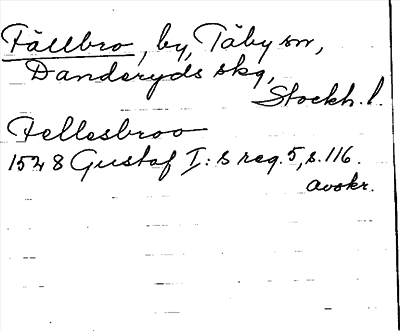 Fällbro, by, Täby sn,
Danderyds skg,
Stockh. l.
Fellesbroo
1528 Gustaf I:s reg. 5, s. 116.
avskr.